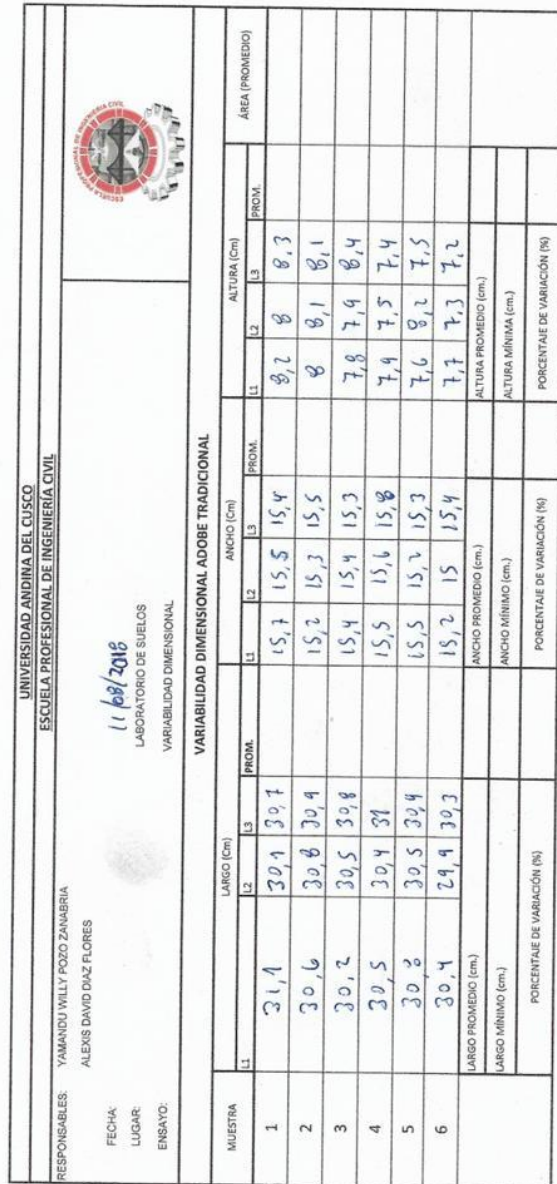 UNIVERSIDAD ANDINA DEL CUSCO
ESCUELA PROFESIONAL DE INGENIERÍA CIVIL
RESPONSABLES: YAMANDU WILLY POZO ZANABRIA
ALEXIS DAVID DIAZ FLORES
ESCUELA PROFESIONAL DE INGENIERIA CIVIL
FECHA: 11/08/2018
LUGAR: LABORATORIO DE SUELOS
ENSAYO: VARIABILIDAD DIMENSIONAL
VARIABILIDAD DIMENSIONAL ADOBE TRADICIONAL
MUESTRA LARGO (Cm) ANCHO (Cm) ALTURA (Cm) ÁREA (PROMEDIO)
L1 L2 L3 PROM. L1 L2 L3 PROM. L1 L2 L3 PROM.
1 31,1 30,9 30,7 15,7 15,5 15,4 8,2 8 8,3
2 30,6 30,8 30,9 15,2 15,3 15,5 8 8,1 8,1
3 30,2 30,5 30,8 15,4 15,4 15,3 7,8 7,9 8,4
4 30,5 30,4 31 15,5 15,6 15,8 7,9 7,5 7,4
5 30,8 30,5 30,4 15,5 15,2 15,3 7,6 8,2 7,5
6 30,4 29,9 30,3 15,2 15 15,4 7,7 7,3 7,2
LARGO PROMEDIO (cm.) ANCHO PROMEDIO (cm.) ALTURA PROMEDIO (cm.)
LARGO MÍNIMO (cm.) ANCHO MÍNIMO (cm.) ALTURA MÍNIMA (cm.)
PORCENTAJE DE VARIACIÓN (%) PORCENTAJE DE VARIACIÓN (%) PORCENTAJE DE VARIACIÓN (%)